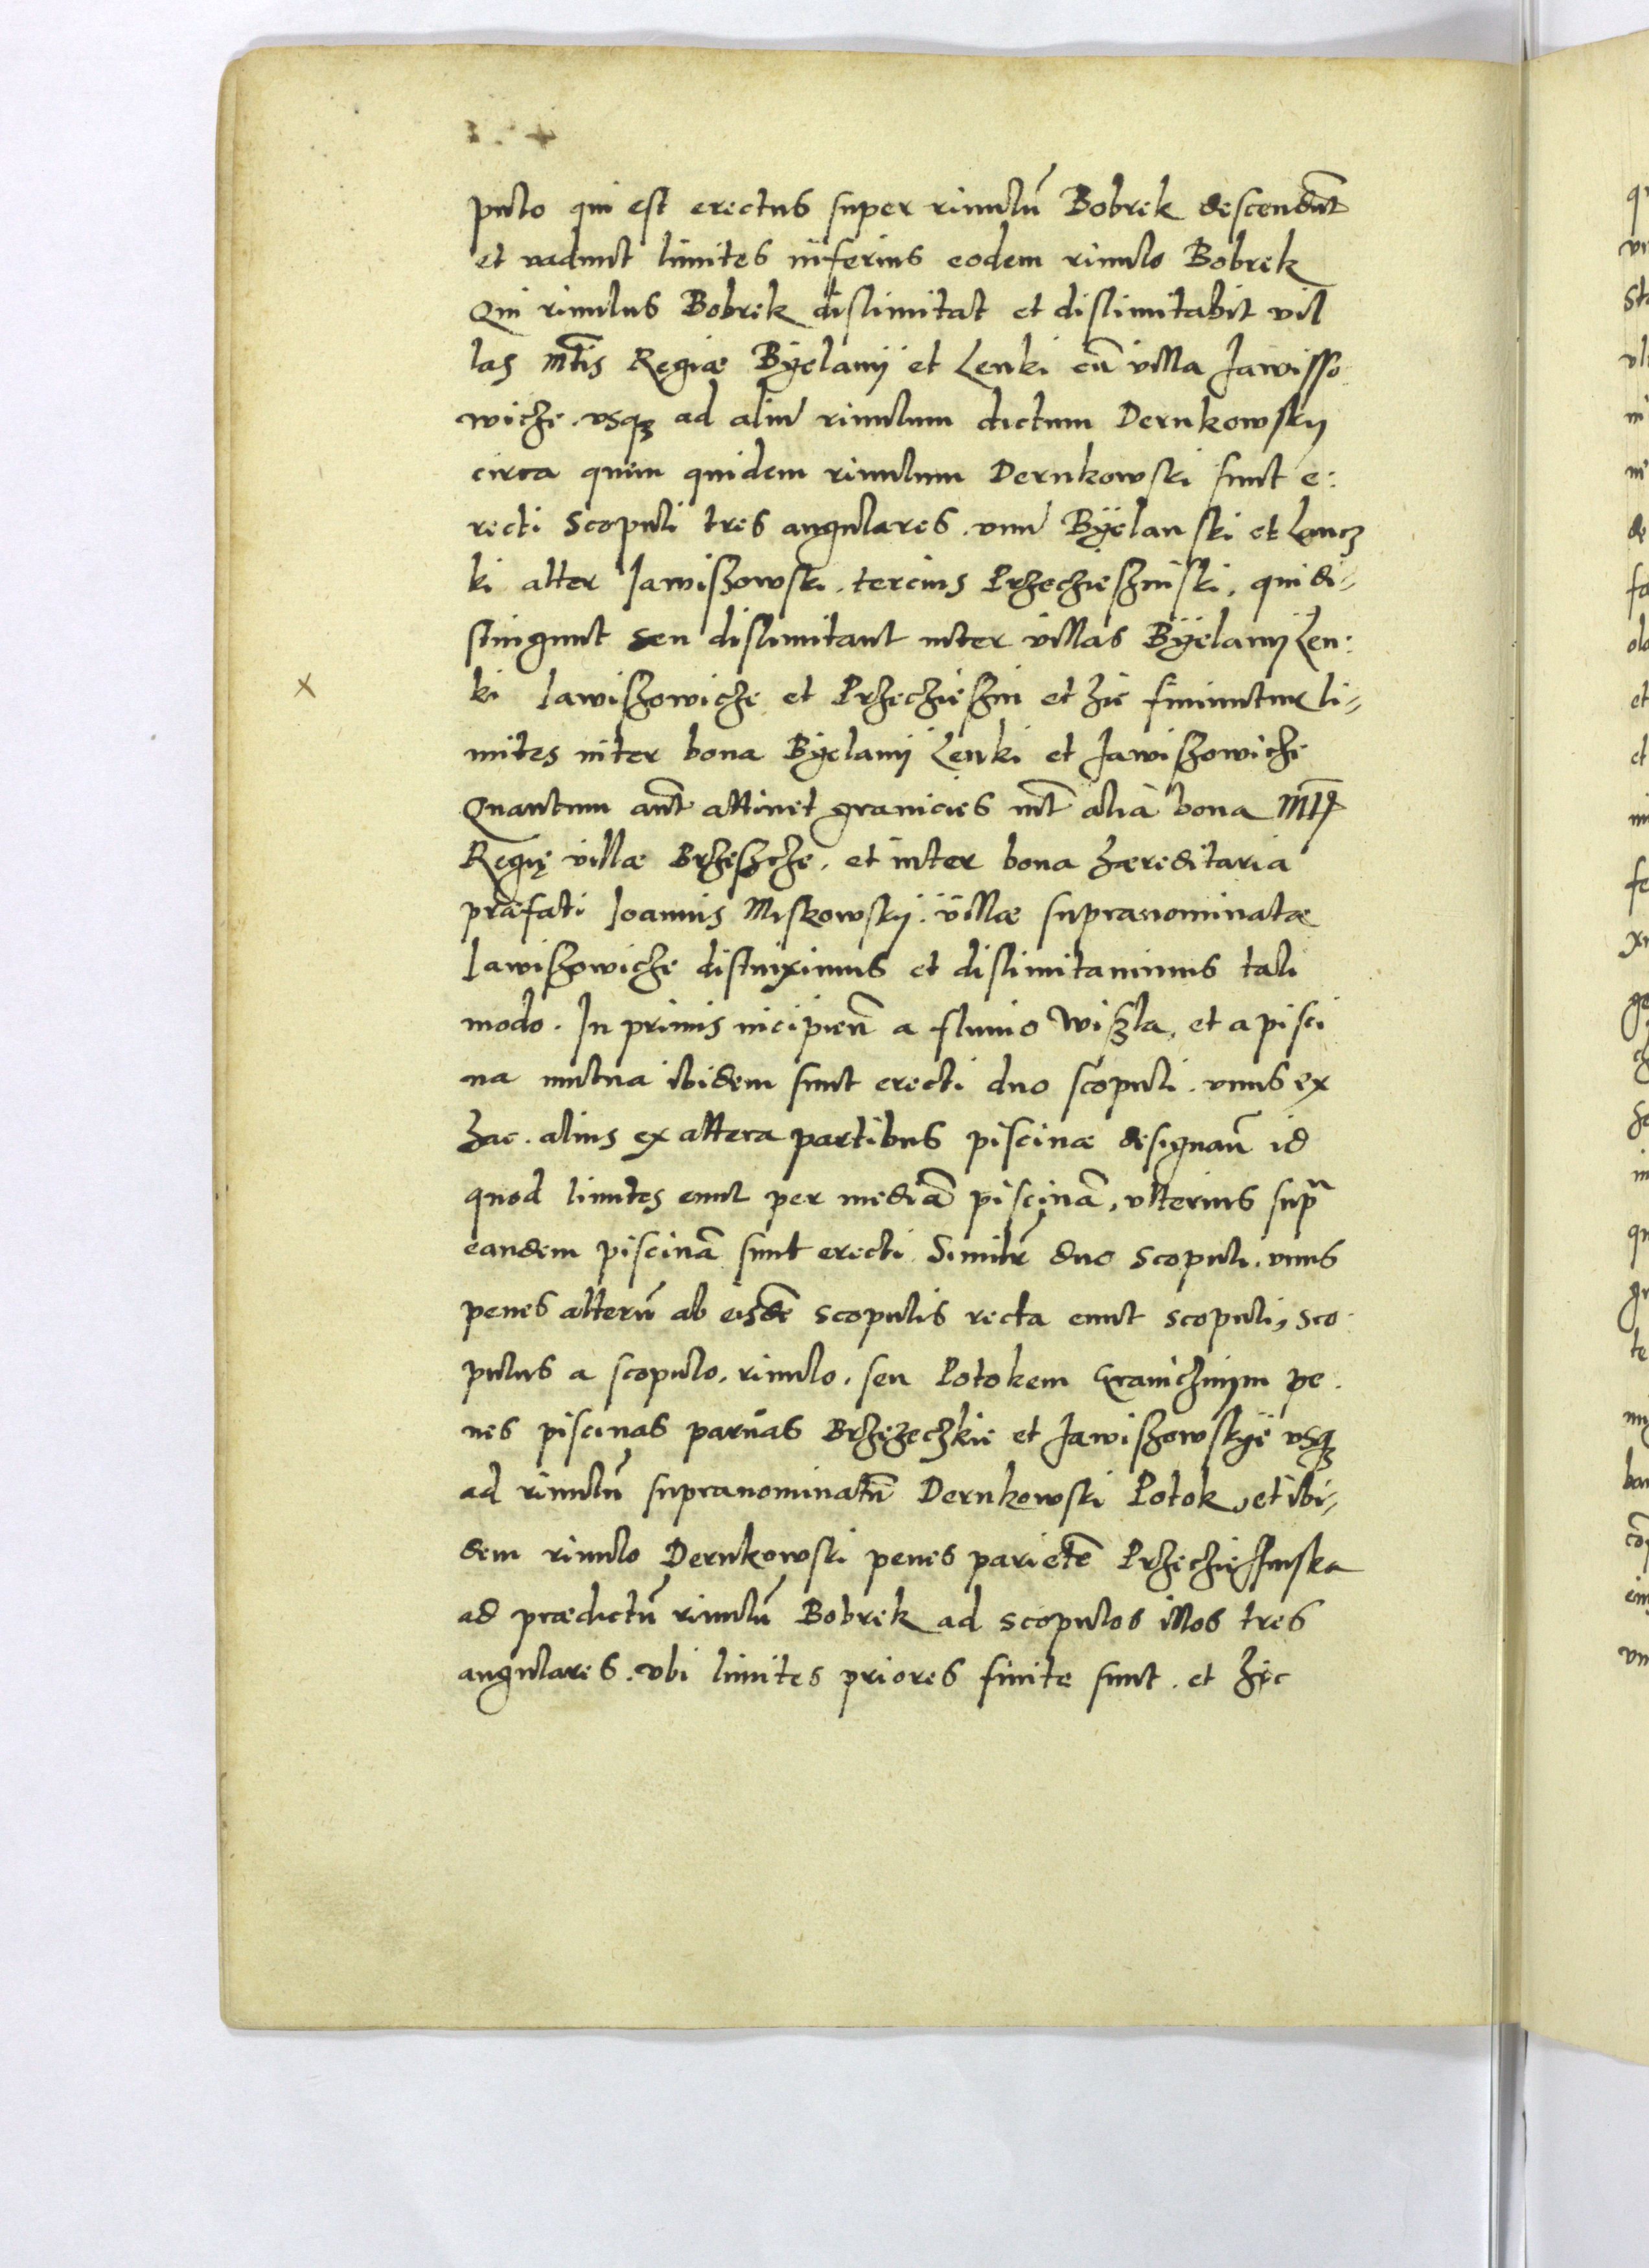 pulo qui est erectus super riuulũ Bobrek descendũt
et uadunt limites inferius eodem riuulo Bobrek
Qui riuulus Bobrek dislimitat et dislimitabit uil
las Mt̃is Regiæ Byelany et Lenki cũ uilla Jawisso
wicze. vsqꝫ ad aliũ riuulum dictum Dernkowsky
circa quem quidem riuulum Dernkowski sunt e:
recti Scopuli tres angulares. vnũ Byelanski et Lencz
ki alter Jawiszowski. tercius Przeczieszinski, qui di-
stingunt seu dislimitant inter uillas Byelany Len:
ki Jawiszowicze et Przeczieszin et hic finiuntur li-
mites inter bona Byelany Lenki et Jawiszowicze
Quantum aũt attinet granicies int̃ alia bona
Regię uillæ Brzeszcze. et inter bona hæreditaria
præfati Joannis Miskowsky. uillæ supranominatæ
Jawiszowicze distinximus et dislimitauimus tali
modo. In primis incipieñ a fluuio Wiszla, et a pisci
na mutua ibidem sunt erecti duo scopuli. vnus ex
hac. alius ex altera partibus piscinæ designañ id
quod limites eunt per mediã piscinã, vlterius supᷓ
eandem piscinã sunt erecti Similr̃ duo scopuli. vnus
penes alterũ ab eisdẽ scopulis recta eunt scopuli, sco
pulus a scopulo, riuulo, seu Potokem Granicznym pe
nes piscinas paruas Brzezeczkie et Jawiszowskye vsqꝫ
ad riuulũ supranominatũ Dernkowski Potok, et ibi-
dem riuulo Dernkowski penes parietẽ Przecziessinska
ad prædictũ riuulũ Bobrek ad scopulos illos tres
angulares. vbi limites priores finite sunt. et hic